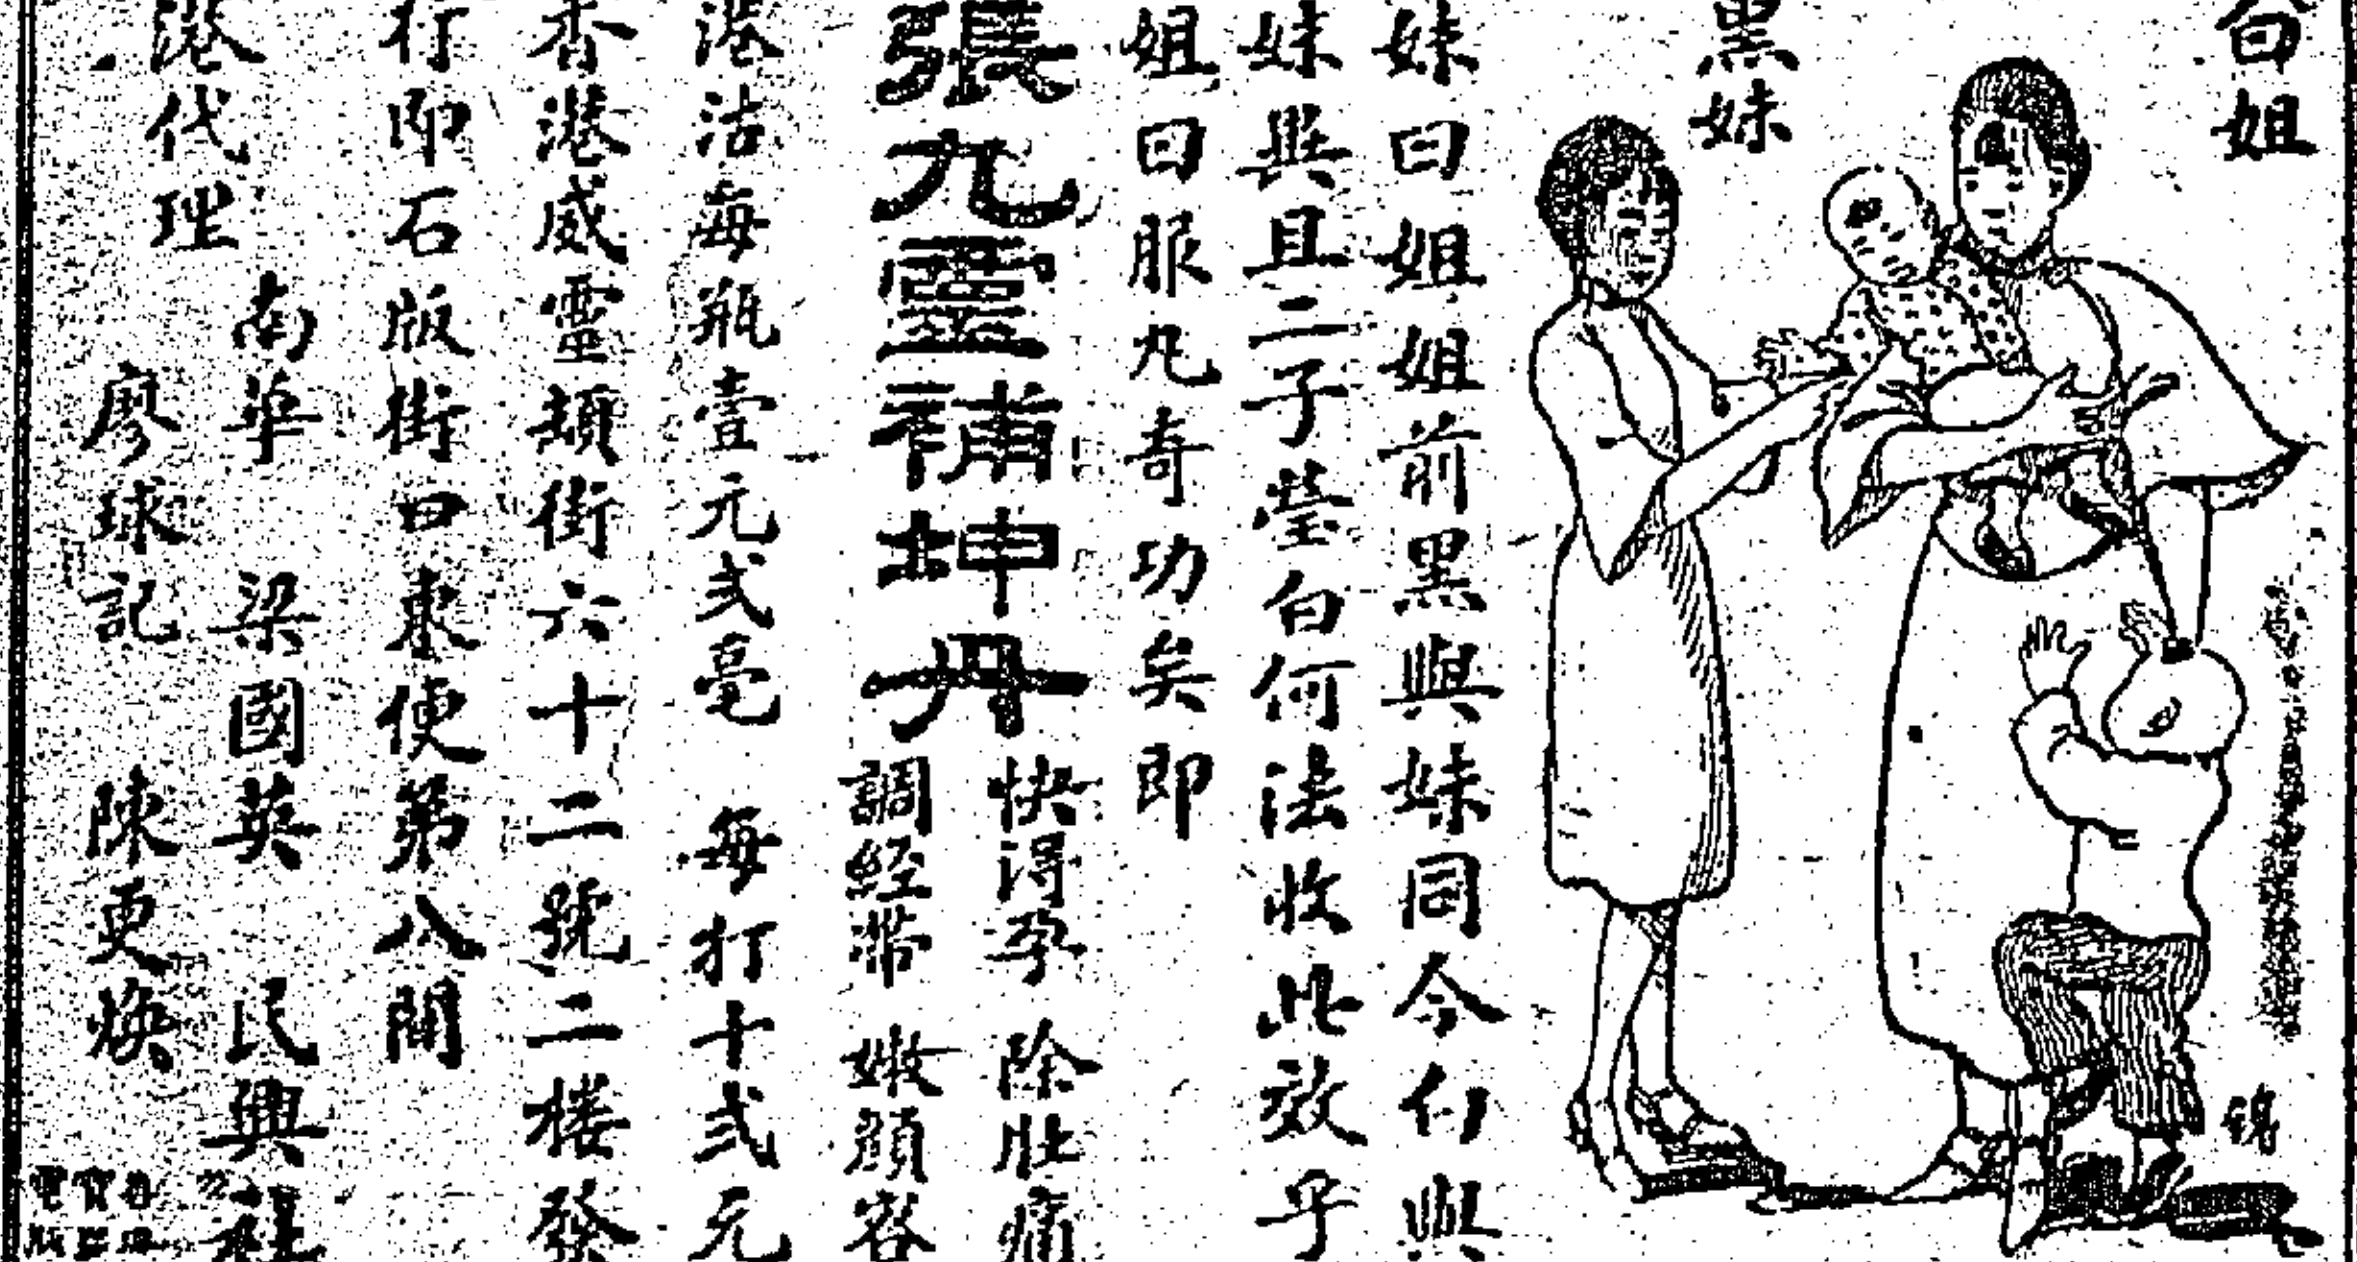 白姐
黑妹
妹曰姐姐前黑與妹同今白與
妹異且二子瑩白何法收此效乎
姐曰服丸奇功矣即
張九靈補坤丹
快得孕 除肚痛
調經帶 嫩顏容
港沽每瓶壹元弍毫 每打十弍元
香港威靈頓街六十二號二樓發
行即石版街口東便第八間
港代理
南華 梁國英 民興
廖球記 陳更煥